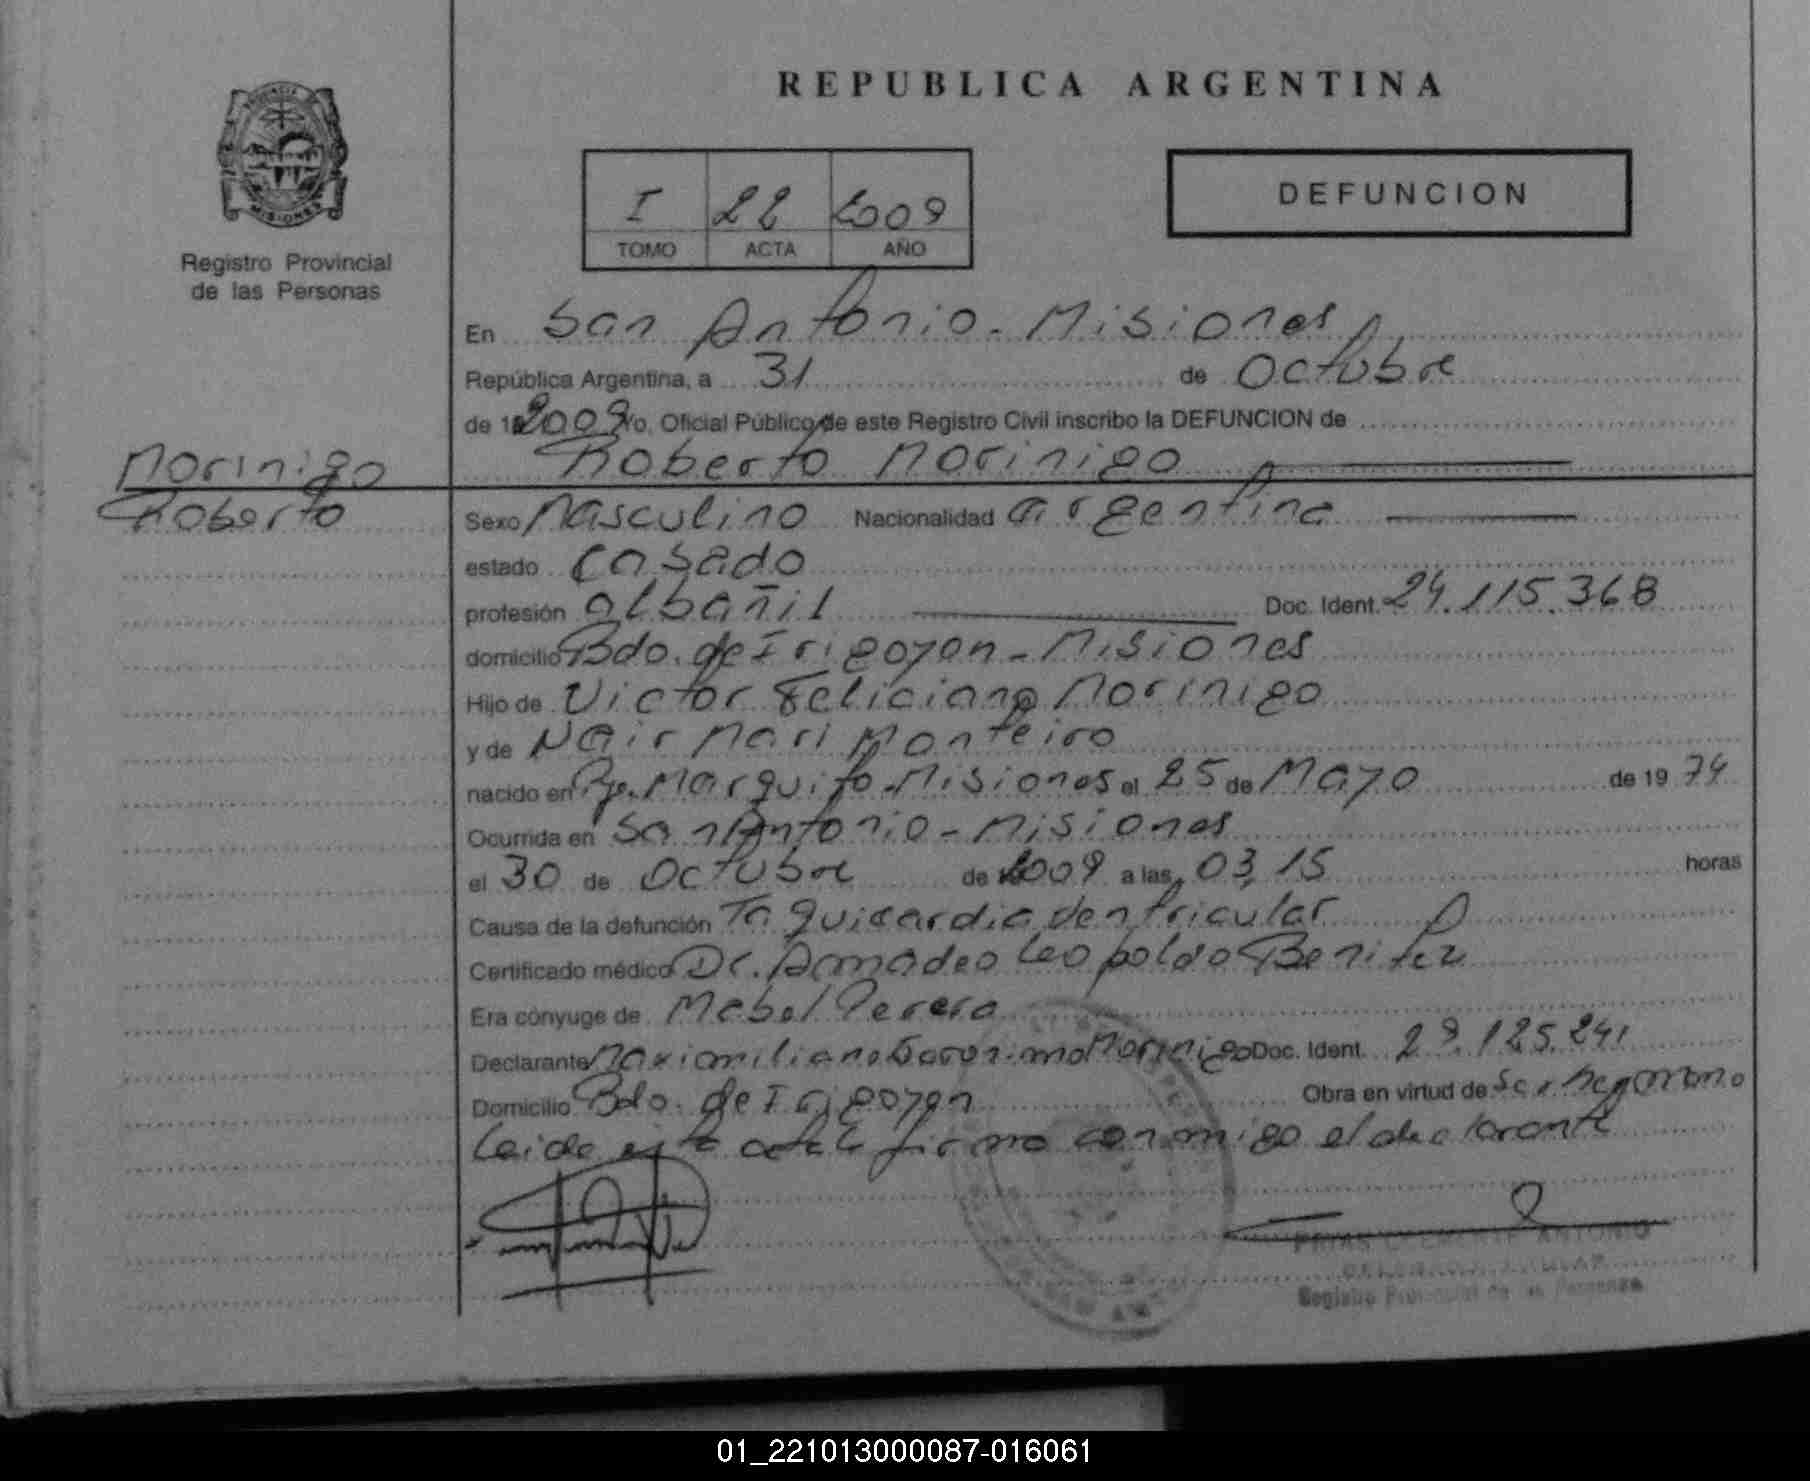 PROVINCIA DE
MISIONES
Registro Provincial
de las Personas
Morinigo
Roberto
REPUBLICA ARGENTINA
I 22 2009
TOMO ACTA AÑO
DEFUNCION
En San Antonio - Misiones
República Argentina, a 31 de Octubre
de 2009 Yo, Oficial Público de este Registro Civil inscribo la DEFUNCION de
Roberto Morinigo
Sexo Masculino Nacionalidad argentina
estado Casado
profesión albañil Doc. Ident. 24.115.368
domicilio Bdo. de Irigoyen - Misiones
Hijo de Victor Feliciano Morinigo
y de Nair Mari Monteiro
nacido en Pje. Marquito - Misiones el 25 de Mayo de 19 74
Ocurrida en San Antonio - Misiones
el 30 de Octubre de 2009 a las 03,15 horas
Causa de la defunción Taquicardia Ventricular
Certificado médico Dr. Amadeo Leopoldo Benitez
Era cónyuge de Mabel Perera
Declarante Maximiliano Morinigo Doc. Ident. 29.125.241
Domicilio Bdo. de Irigoyen Obra en virtud de ser hermano
Leida esta acta la firma conmigo el declarante
ANTONIO
Registro Provincial de las Personas
01_221013000087-016061